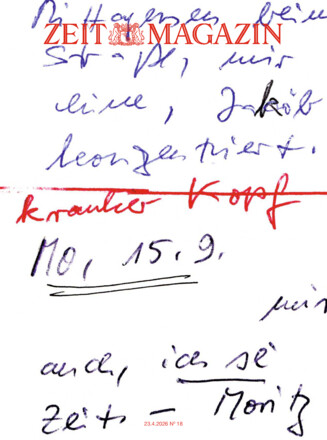 ZEIT MAGAZIN
mir
eine, Jakob
konzentriert.
kranker Kopf
Mo, 15.9.
mir
auch, ich sē
Zeit – Moritz
23.4.2026 Nº 18